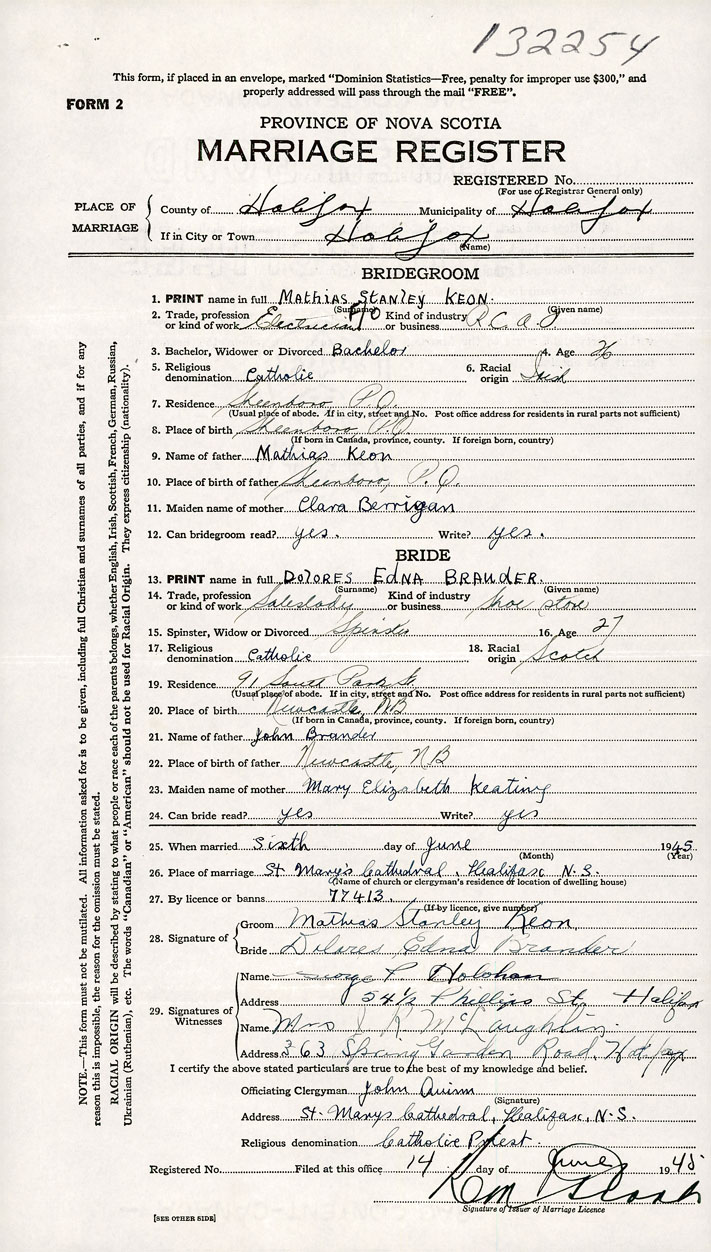 132254
This form, if placed in an envelope, marked "Dominion Statistics—Free, penalty for improper use $300," and
properly addressed will pass through the mail "FREE".
FORM 2
PROVINCE OF NOVA SCOTIA
MARRIAGE REGISTER
REGISTERED No.
(For use of Registrar General only)
PLACE OF MARRIAGE
County of Halifax Municipality of Halifax
If in City or Town Halifax
(Name)
BRIDEGROOM
1. PRINT name in full MATHIAS STANLEY KEON.
(Surname) (Given name)
2. Trade, profession or kind of work Electrician F/O Kind of industry or business R.C.A.F
3. Bachelor, Widower or Divorced Bachelor 4. Age 26
5. Religious denomination Catholic 6. Racial origin Irish
7. Residence Sheenboro P.Q.
(Usual place of abode. If in city, street and No. Post office address for residents in rural parts not sufficient)
8. Place of birth Sheenboro P.Q
(If born in Canada, province, county. If foreign born, country)
9. Name of father Mathias Keon
10. Place of birth of father Sheenboro, P.Q.
11. Maiden name of mother Clara Berrigan
12. Can bridegroom read? yes. Write? yes.
BRIDE
13. PRINT name in full DOLORES EDNA BRANDER.
(Surname) (Given name)
14. Trade, profession or kind of work Saleslady Kind of industry or business Shoe store
15. Spinster, Widow or Divorced Spinster 16. Age 27
17. Religious denomination Catholic 18. Racial origin Scotch
19. Residence 91 South Park St.
(Usual place of abode. If in city, street and No. Post office address for residents in rural parts not sufficient)
20. Place of birth Newcastle, NB
(If born in Canada, province, county. If foreign born, country)
21. Name of father John Brander
22. Place of birth of father Newcastle, NB
23. Maiden name of mother Mary Elizabeth Keating
24. Can bride read? yes Write? yes
25. When married Sixth day of June 1945
(Month) (Year)
26. Place of marriage St Mary's Cathedral, Halifax N.S.
(Name of church or clergyman's residence or location of dwelling house)
27. By licence or banns 77413.
(If by licence, give number)
28. Signature of
Groom Mathias Stanley Keon
Bride Dolores Edna Brander
29. Signatures of Witnesses
Name George P Holohan
Address 54½ Phillips St. Halifax
Name Mrs J. R. McLaughlin
Address 363 Spring Garden Road, Halifax
I certify the above stated particulars are true to the best of my knowledge and belief.
Officiating Clergyman John Quinn
(Signature)
Address St. Marys Cathedral, Halifax, N.S.
Religious denomination Catholic Priest.
Registered No. Filed at this office 14 day of June 1945
Signature of Issuer of Marriage Licence
[SEE OTHER SIDE]
NOTE.—This form must not be mutilated. All information asked for is to be given, including full Christian and surnames of all parties, and if for any
reason this is impossible, the reason for the omission must be stated.
RACIAL ORIGIN will be described by stating to what people or race each of the parents belongs, whether English, Irish, Scottish, French, German, Russian,
Ukrainian (Ruthenian), etc. The words "Canadian" or "American" should not be used for Racial Origin. They express citizenship (nationality).